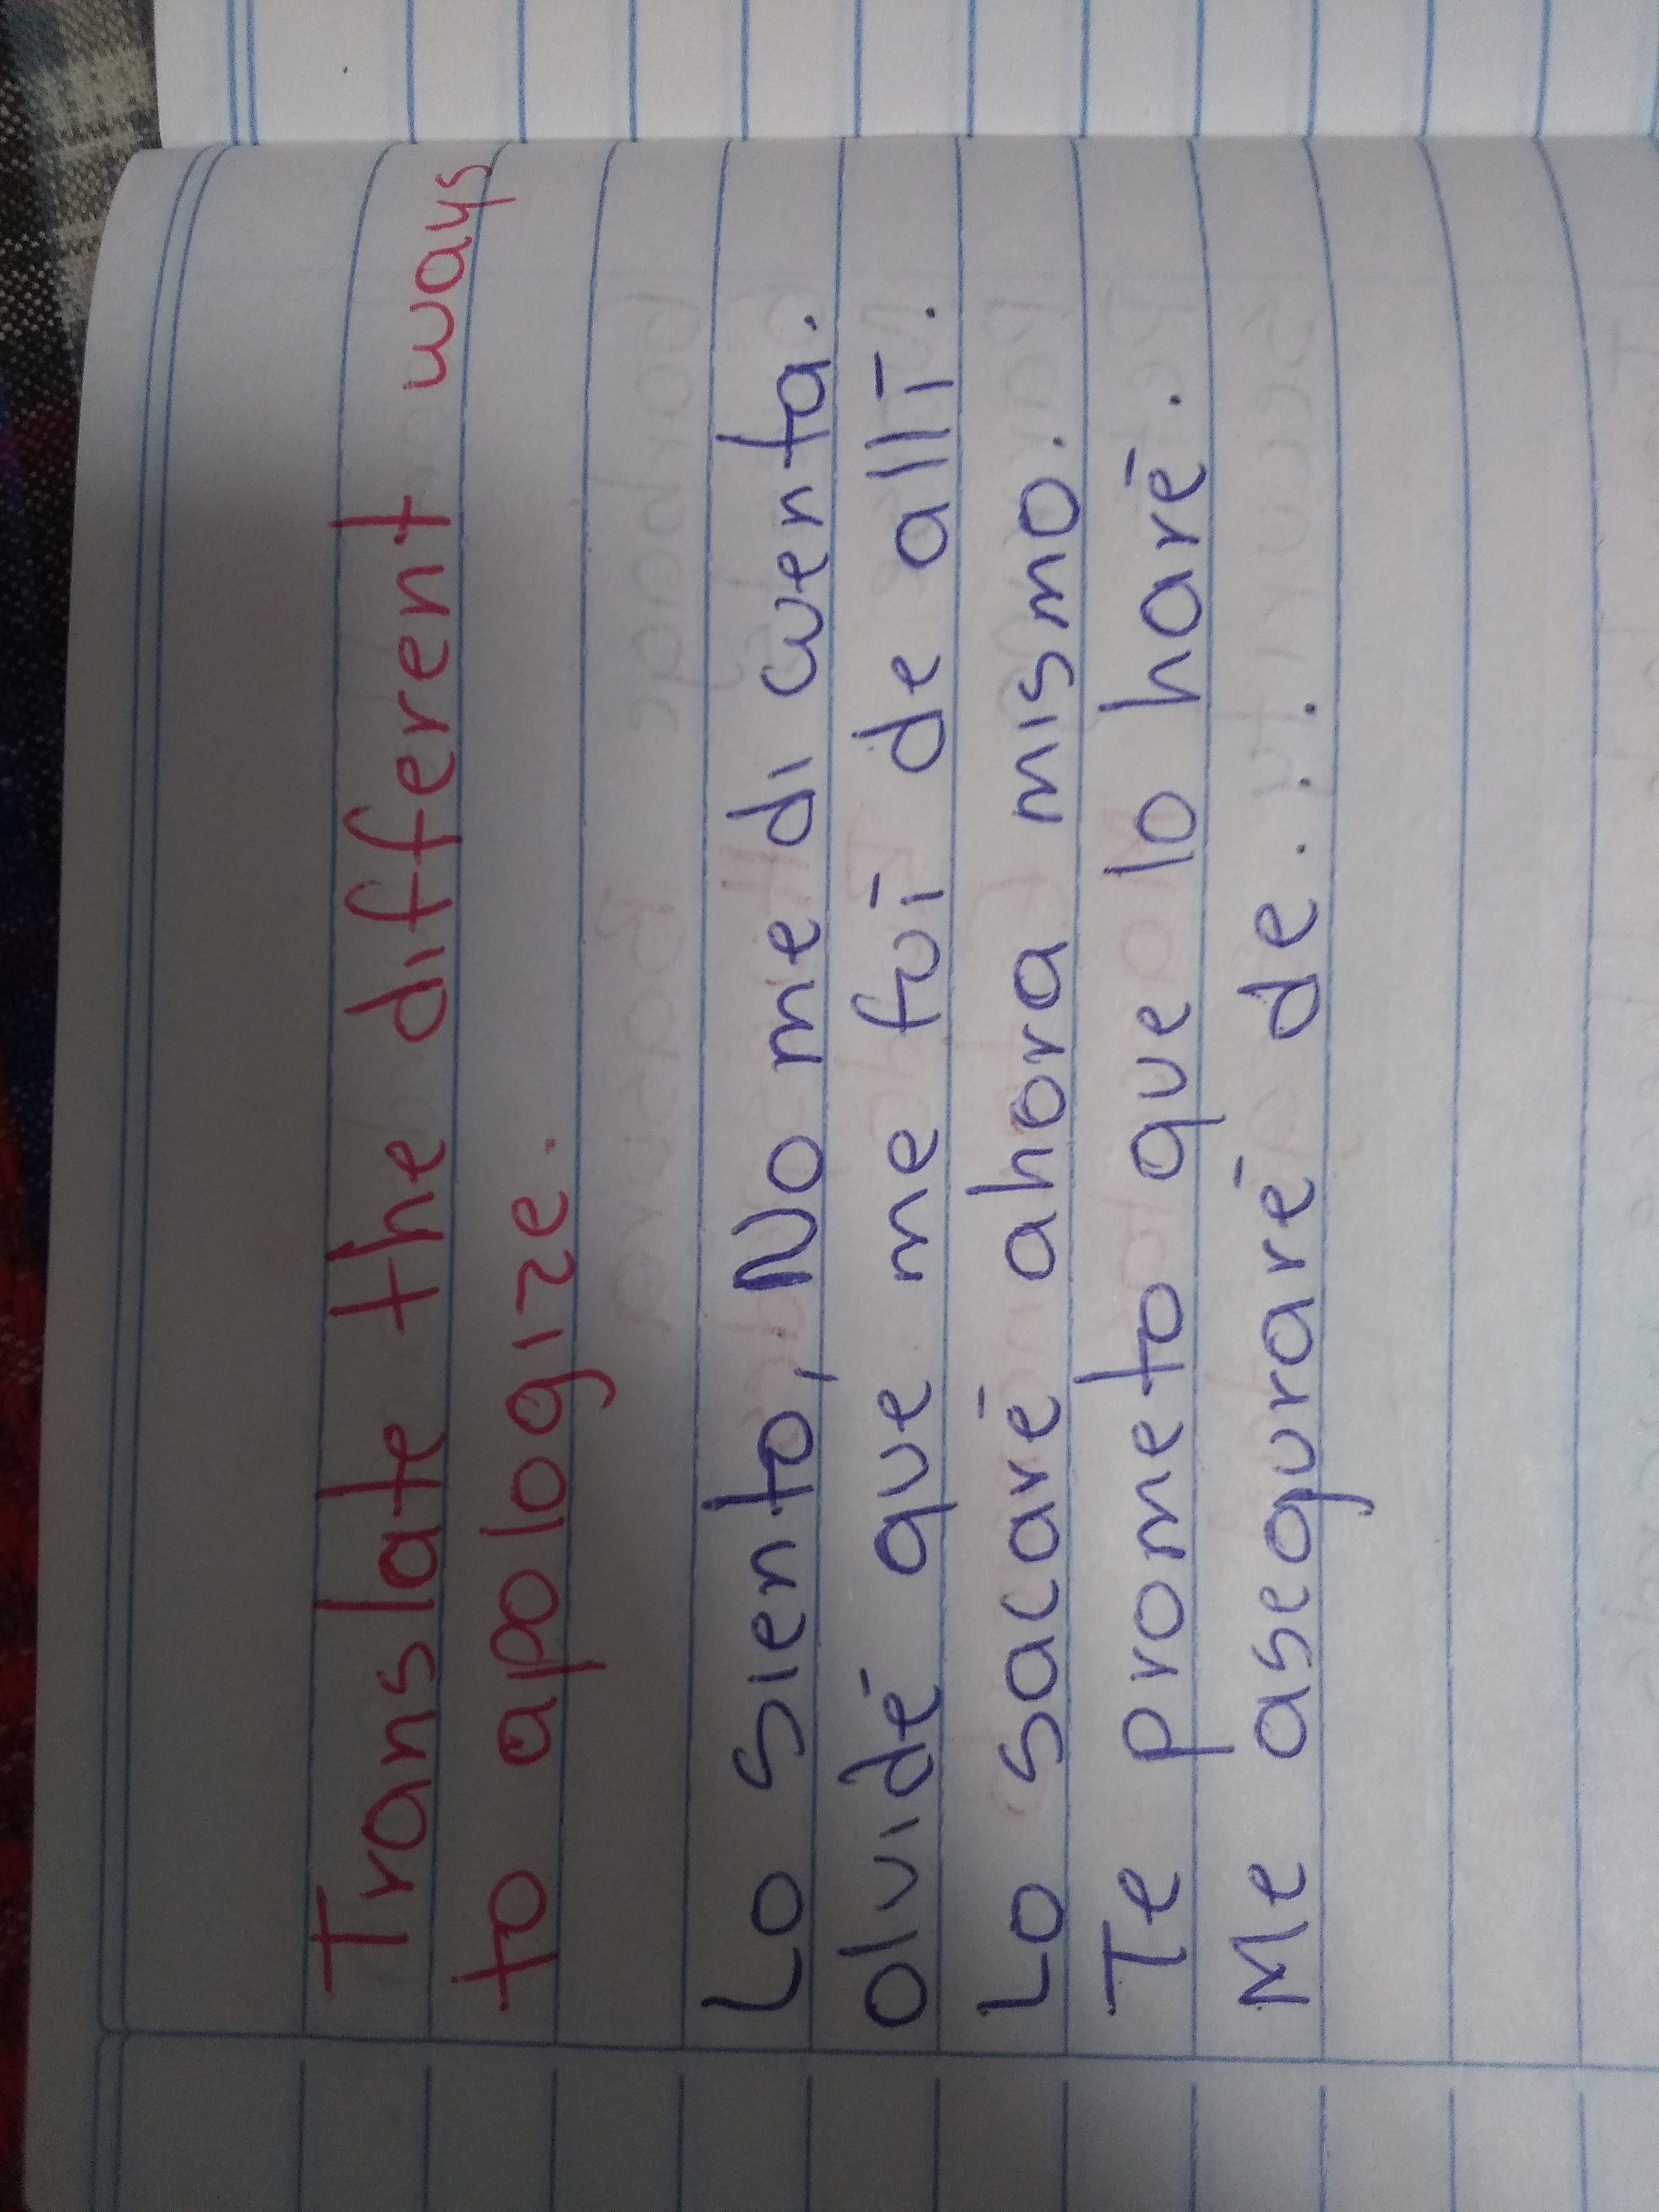 Translate the different ways
to apologize.
Lo siento, No me di cuenta.
olvidé que me fuí de allí.
Lo sacaré ahora mismo.
Te prometo que lo haré.
Me aseguraré de...